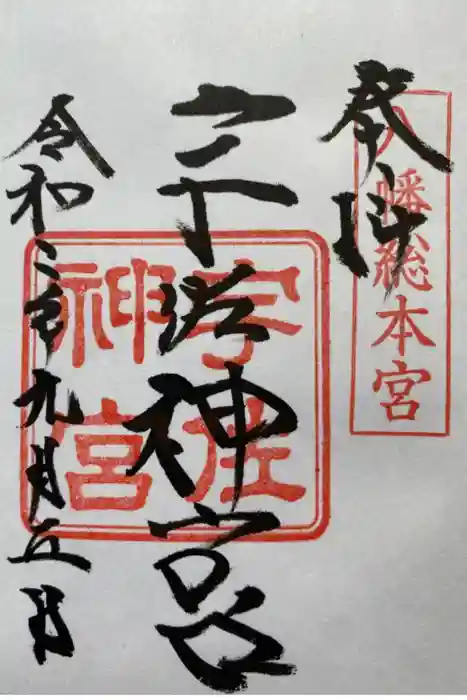 奉拝
八幡総本宮
宇佐神宮
宇佐
神宮
令和二年九月五日